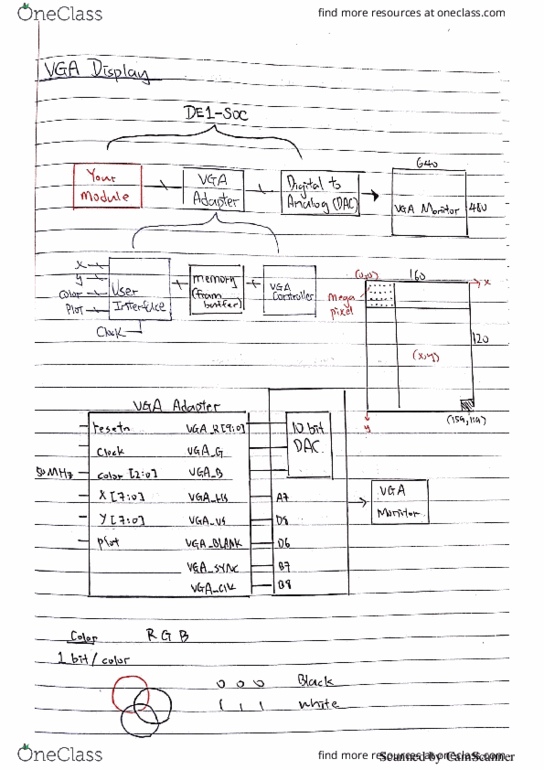 OneClass
find more resources at oneclass.com
VGA Display
DE1-SOC
Your Module
VGA Adapter
Digital to Analog (DAC)
640
VGA Monitor
480
x
y
color
Plot
User Interface
Clock
memory (fram buffer)
VGA Controller
(0,0)
160
x
mega pixel
120
(x,y)
y
(159,119)
VGA Adapter
resetn
VGA_R[9:0]
10 bit DAC
Clock
VGA_G
50MHz
color [2:0]
VGA_B
X [7:0]
VGA_HS
A7
VGA Monitor
Y [7:0]
VGA_VS
D8
plot
VGA_BLANK
D6
VGA_SYNC
B7
VGA_CLK
B8
Color
R G B
1 bit/color
0 0 0 Black
1 1 1 white
OneClass
find more resources at oneclass.com
Scanned by CamScanner